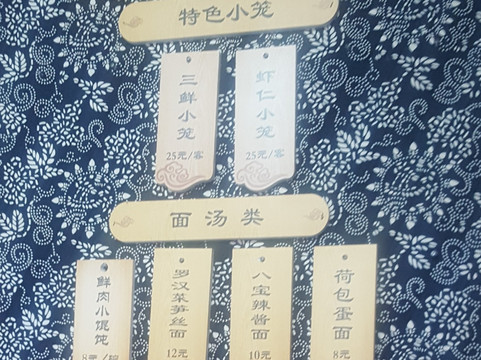 特色小笼
三鲜小笼
25元/客
虾仁小笼
25元/客
面汤类
鲜肉小馄饨
8元/碗
罗汉菜笋丝面
12元
八宝辣酱面
10元
荷包蛋面
8元